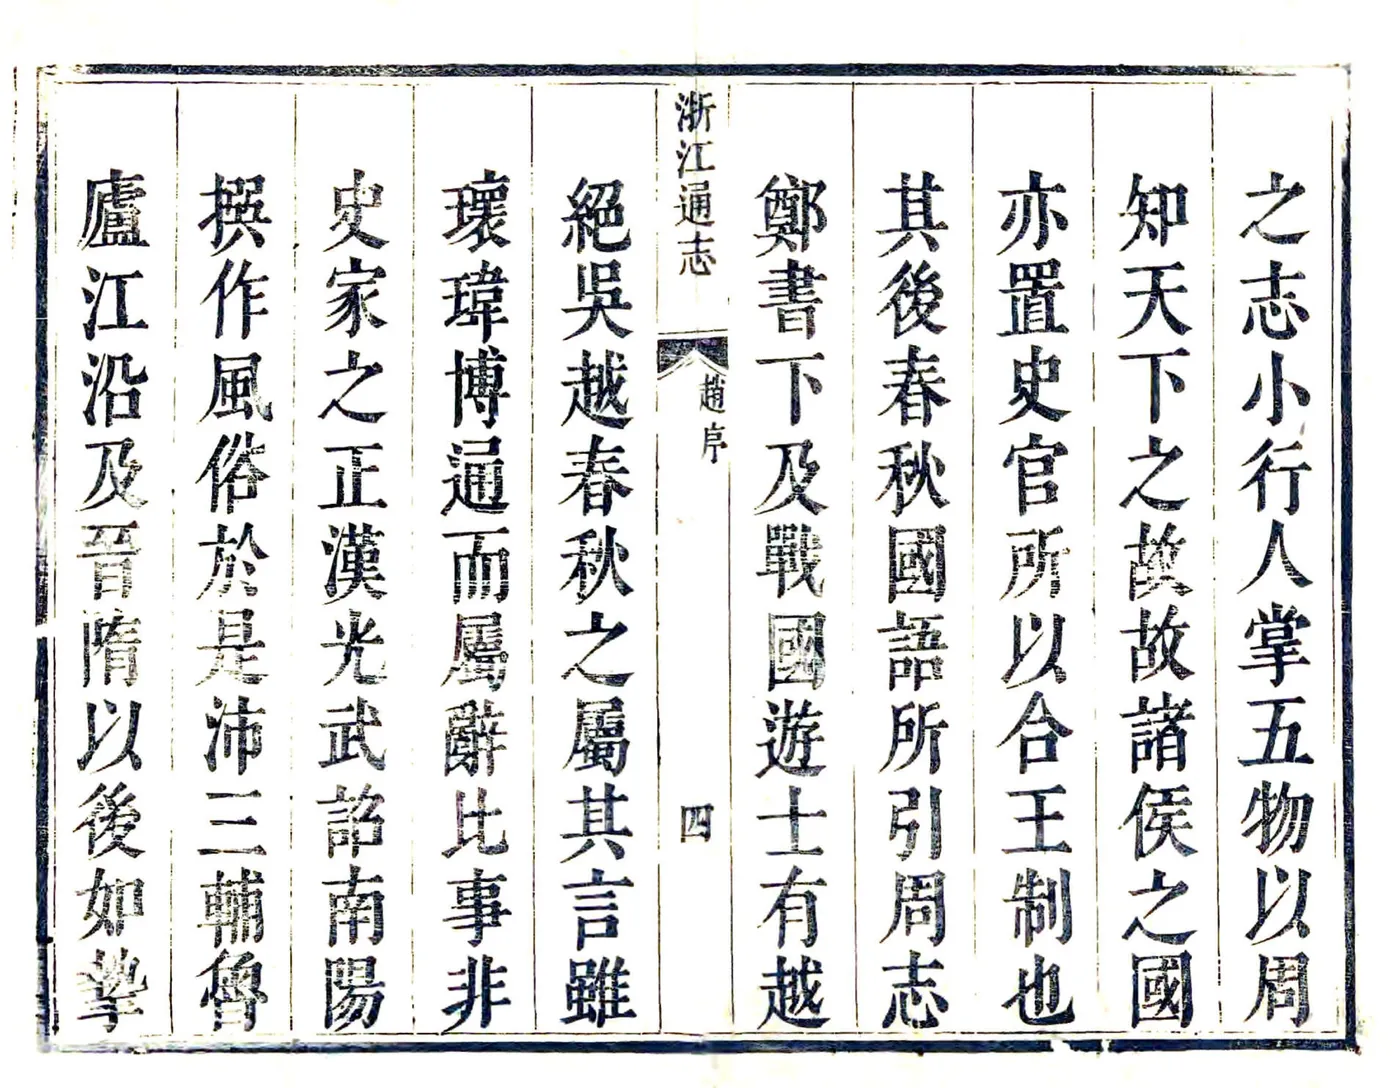 之志小行人掌五物以周
知天下之故故諸侯之國
亦置史官所以合王制也
其後春秋國語所引周志
鄭書下及戰國遊士有越
浙江通志
趙序
四
絕吳越春秋之屬其言雖
瓌瑋博通而屬辭比事非
史家之正漢光武詔南陽
撰作風俗於是沛三輔魯
廬江沿及晉隋以後如摯